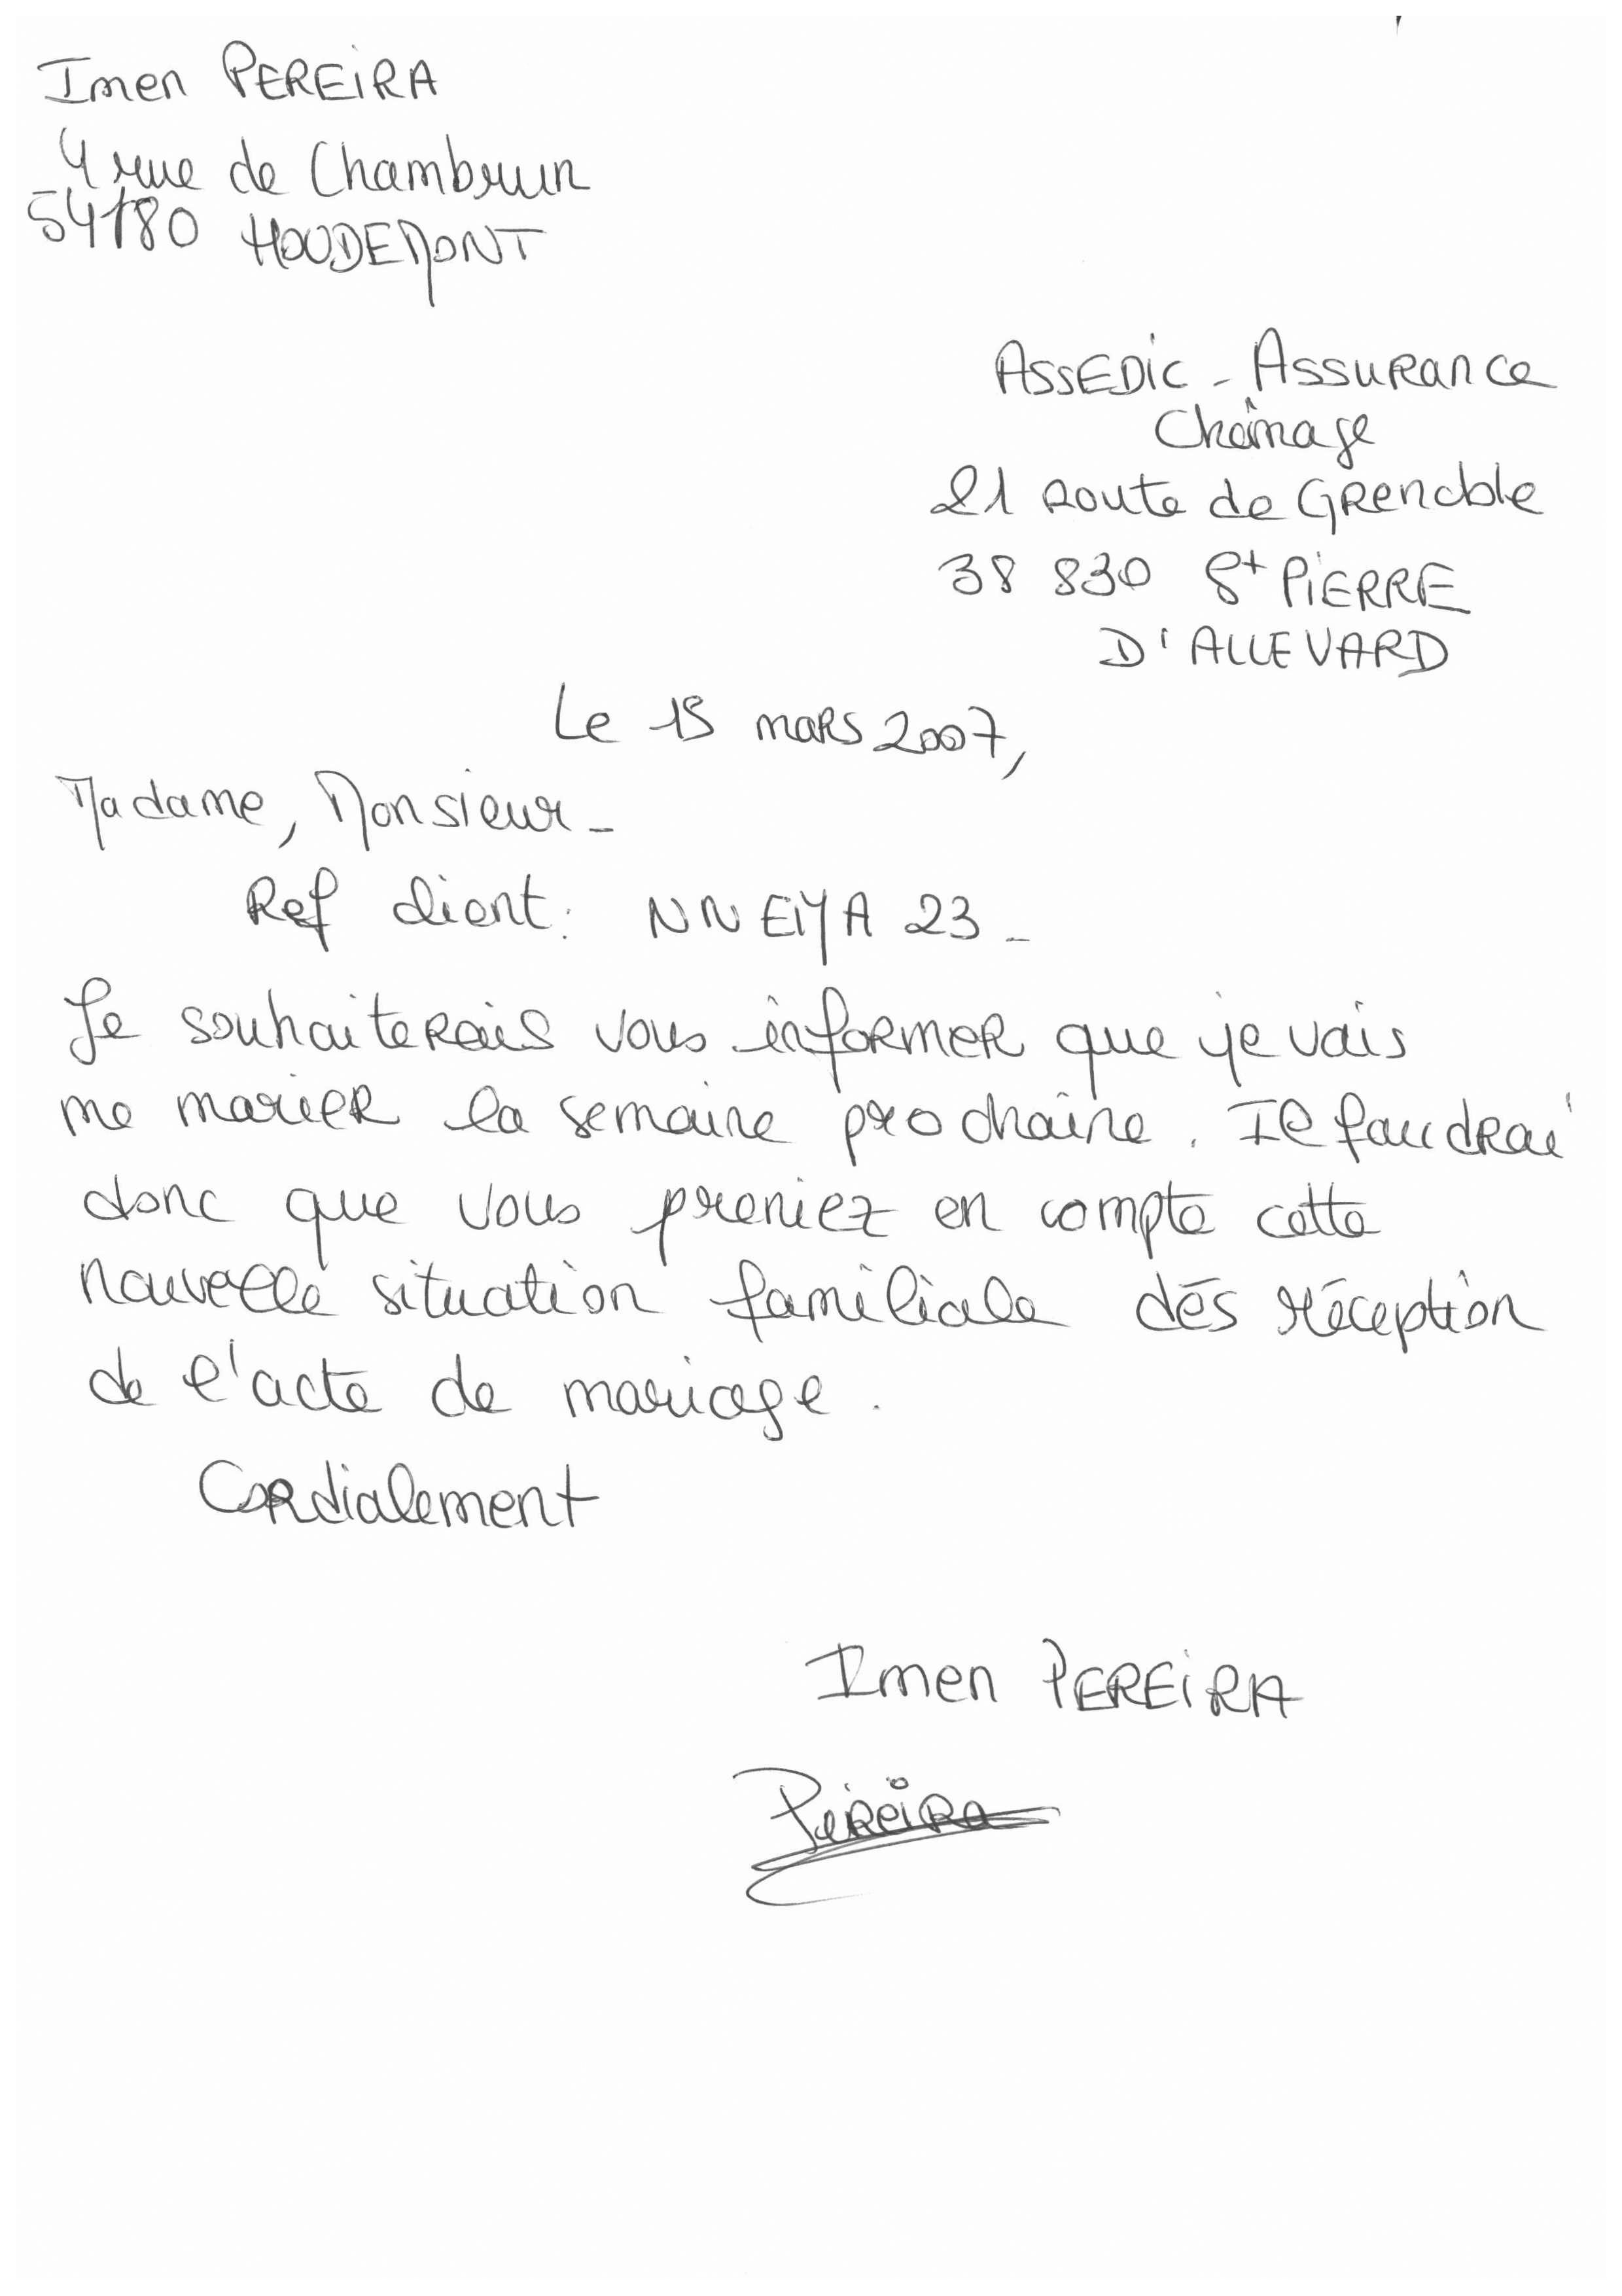 Imen PEREIRA
4 rue de Chambrun
54180 HOUDEMONT
ASSEDIC - Assurance
Chômage
21 Route de Grenoble
38 830 St PIERRE
D'ALLEVARD
Le 15 mars 2007,
Madame, Monsieur -
Ref client : NNEIYA 23 -
Je souhaiterais vous informer que je vais
me marier la semaine prochaine. Il faudrai
donc que vous preniez en compte cette
nouvelle situation familiale dès réception
de l'acte de mariage.
Cordialement
Imen PEREIRA
Pereira